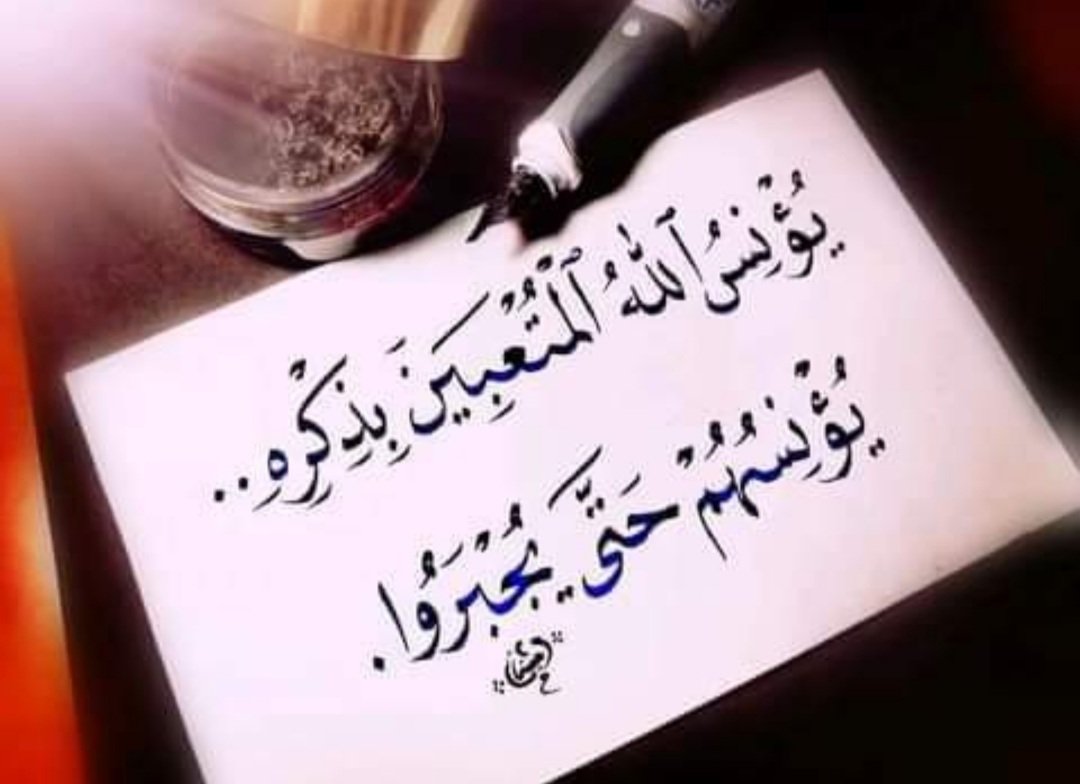 يُؤْنِسُ ٱللَّهُ ٱلْمُتْعَبِينَ بِذِكْرِهِ..
يُؤْنِسُهُمْ حَتَّى يُجْبَرُوا.